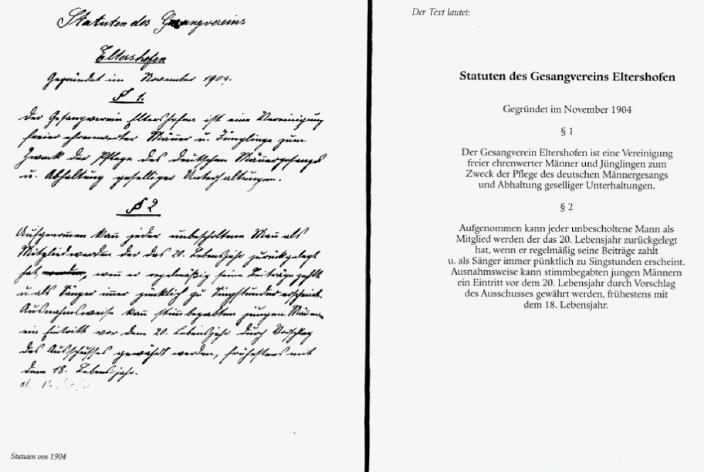 Statuten des Gesangvereins
Eltershofen
Gegründet im November 1904.
§ 1.
Der Gesangverein Eltershofen ist eine Vereinigung
freier ehrenwerter Männer u. Jünglinge zum
Zweck der Pflege des deutschen Männergesangs
u. Abhaltung geselliger Unterhaltungen.
§ 2
Aufgenommen kan jeder unbescholtene Man als
Mitglied werden der das 20. Lebensjahr zurückgelegt
hat, wen er regelmäßig seine Beiträge zahlt
u. als Sänger imer pünktlich zu Singstunden erscheint.
Ausnahmsweise kan stimbegabten jungen Mänern
ein Eintritt vor dem 20. Lebensjahr durch Vorschlag
des Ausschusses gewährt werden, frühestens mit
dem 18. Lebensjahr.
Statuten von 1904
Der Text lautet:
Statuten des Gesangvereins Eltershofen
Gegründet im November 1904
§ 1
Der Gesangverein Eltershofen ist eine Vereinigung
freier ehrenwerter Männer und Jünglingen zum
Zweck der Pflege des deutschen Männergesangs
und Abhaltung geselliger Unterhaltungen.
§ 2
Aufgenommen kann jeder unbescholtene Mann als
Mitglied werden der das 20. Lebensjahr zurückgelegt
hat, wenn er regelmäßig seine Beiträge zahlt
u. als Sänger immer pünktlich zu Singstunden erscheint.
Ausnahmsweise kann stimmbegabten jungen Männern
ein Eintritt vor dem 20. Lebensjahr durch Vorschlag
des Ausschusses gewährt werden, frühestens mit
dem 18. Lebensjahr.